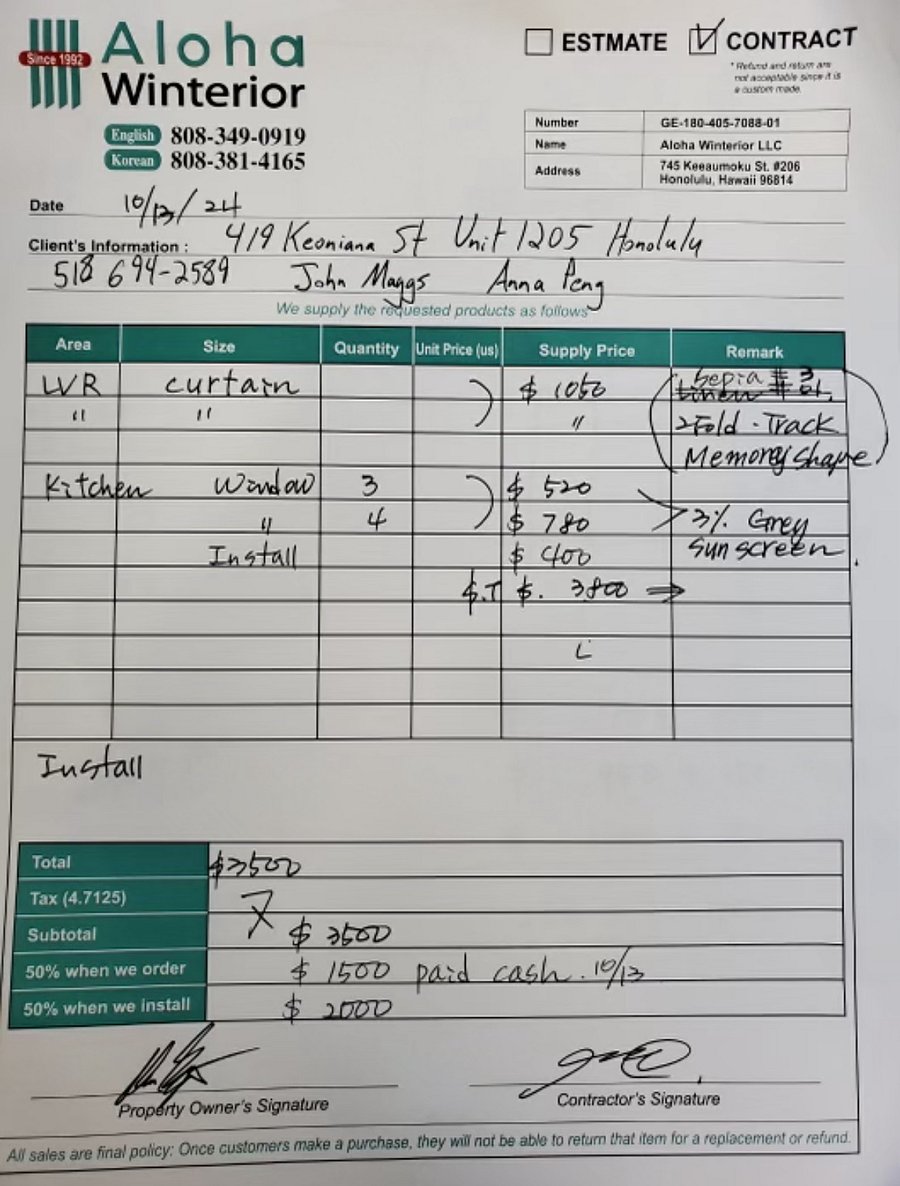 Since 1992
Aloha
Winterior
English 808-349-0919
Korean 808-381-4165
ESTMATE CONTRACT
* Refund and return are
not acceptable since it is
a custom made.
Number GE-180-405-7088-01
Name Aloha Winterior LLC
Address 745 Keeaumoku St. #206
Honolulu, Hawaii 96814
Date 10/13/24
Client's Information : 419 Keoniana St Unit 1205 Honolulu
518 694-2589 John Maggs Anna Peng
We supply the requested products as follows
Area Size Quantity Unit Price (us) Supply Price Remark
LVR curtain $ 1050 Sepia # 3
" " " 2 Fold · Track
Memory Shape
Kitchen Window 3 $ 520
" 4 $ 780 3% Grey
Install $ 400 Sun screen
$.T $. 3800 ⇒
Install
Total $3500
Tax (4.7125)
Subtotal $ 3500
50% when we order $ 1500 paid cash. 10/13
50% when we install $ 2000
Property Owner's Signature Contractor's Signature
All sales are final policy: Once customers make a purchase, they will not be able to return that item for a replacement or refund.